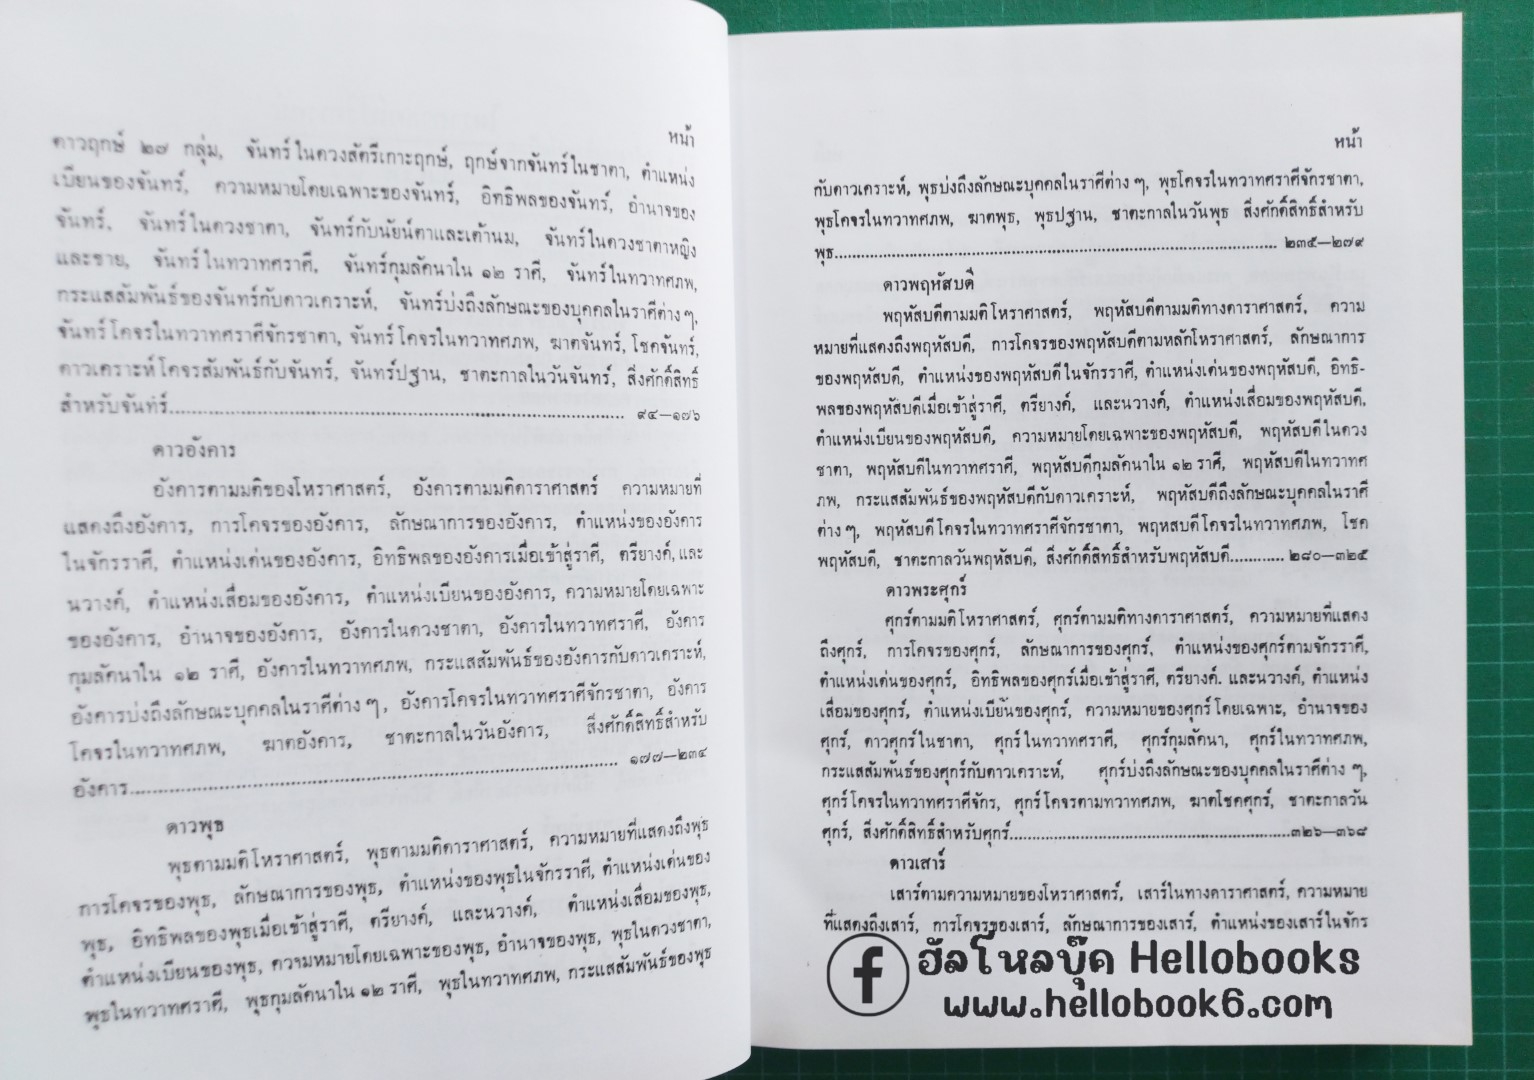 หน้า
ดาวฤกษ์ ๒๗ กลุ่ม, จันทร์ในดวงสัตรีเกาะฤกษ์, ฤกษ์จากจันทร์ในชาตา, ตำแหน่ง
เบียนของจันทร์, ความหมายโดยเฉพาะของจันทร์, อิทธิพลของจันทร์, อำนาจของ
จันทร์, จันทร์ในดวงชาตา, จันทร์กับนัยน์ตาและเต้านม, จันทร์ในดวงชาตาหญิง
และชาย, จันทร์ในทวาทศราศี, จันทร์กุมลัคนาใน ๑๒ ราศี, จันทร์ในทวาทศภพ,
กระแสสัมพันธ์ของจันทร์กับดาวเคราะห์, จันทร์บ่งถึงลักษณะของบุคคลในราศีต่างๆ,
จันทร์โคจรในทวาทศราศีจักรชาตา, จันทร์โคจรในทวาทศภพ, ฆาตจันทร์, โชคจันทร์,
ดาวเคราะห์โคจรสัมพันธ์กับจันทร์, จันทร์ปฐาน, ชาตะกาลในวันจันทร์, สิ่งศักดิ์สิทธิ์
สำหรับจันทร์........ ๙๔—๑๗๖
ดาวอังคาร
อังคารตามมติของโหราศาสตร์, อังคารตามมติดาราศาสตร์ ความหมายที่
แสดงถึงอังคาร, การโคจรของอังคาร, ลักษณาการของอังคาร, ตำแหน่งของอังคาร
ในจักรราศี, ตำแหน่งเด่นของอังคาร, อิทธิพลของอังคารเมื่อเข้าสู่ราศี, ตรียางค์, และ
นวางค์, ตำแหน่งเสื่อมของอังคาร, ตำแหน่งเบียนของอังคาร, ความหมายโดยเฉพาะ
ของอังคาร, อำนาจของอังคาร, อังคารในดวงชาตา, อังคารในทวาทศราศี, อังคาร
กุมลัคนาใน ๑๒ ราศี, อังคารในทวาทศภพ, กระแสสัมพันธ์ของอังคารกับดาวเคราะห์,
อังคารบ่งถึงลักษณะบุคคลในราศีต่างๆ, อังคารโคจรในทวาทศราศีจักรชาตา, อังคาร
โคจรในทวาทศภพ, ฆาตอังคาร, ชาตะกาลในวันอังคาร, สิ่งศักดิ์สิทธิ์สำหรับ
อังคาร........ ๑๗๗—๒๓๔
ดาวพุธ
พุธตามมติโหราศาสตร์, พุธตามมติดาราศาสตร์, ความหมายที่แสดงถึงพุธ
การโคจรของพุธ, ลักษณาการของพุธ, ตำแหน่งของพุธในจักรราศี, ตำแหน่งเด่นของ
พุธ, อิทธิพลของพุธเมื่อเข้าสู่ราศี, ตรียางค์, และนวางค์, ตำแหน่งเสื่อมของพุธ,
ตำแหน่งเบียนของพุธ, ความหมายโดยเฉพาะของพุธ, อำนาจของพุธ, พุธในดวงชาตา,
พุธในทวาทศราศี, พุธกุมลัคนาใน ๑๒ ราศี, พุธในทวาทศภพ, กระแสสัมพันธ์ของพุธ
หน้า
กับดาวเคราะห์, พุธบ่งถึงลักษณะบุคคลในราศีต่างๆ, พุธโคจรในทวาทศราศีจักรชาตา,
พุธโคจรในทวาทศภพ, ฆาตพุธ, พุธปฐาน, ชาตะกาลในวันพุธ สิ่งศักดิ์สิทธิ์สำหรับ
พุธ........ ๒๓๕—๒๗๙
ดาวพฤหัสบดี
พฤหัสบดีตามมติโหราศาสตร์, พฤหัสบดีตามมติทางดาราศาสตร์, ความ
หมายที่แสดงถึงพฤหัสบดี, การโคจรของพฤหัสบดีตามหลักโหราศาสตร์, ลักษณาการ
ของพฤหัสบดี, ตำแหน่งของพฤหัสบดีในจักรราศี, ตำแหน่งเด่นของพฤหัสบดี, อิทธิ-
พลของพฤหัสบดีเมื่อเข้าสู่ราศี, ตรียางค์, และนวางค์, ตำแหน่งเสื่อมของพฤหัสบดี,
ตำแหน่งเบียนของพฤหัสบดี, ความหมายโดยเฉพาะของพฤหัสบดี, พฤหัสบดีในดวง
ชาตา, พฤหัสบดีในทวาทศราศี, พฤหัสบดีกุมลัคนาใน ๑๒ ราศี, พฤหัสบดีในทวาทศ
ภพ, กระแสสัมพันธ์ของพฤหัสบดีกับดาวเคราะห์, พฤหัสบดีถึงลักษณะบุคคลในราศี
ต่างๆ, พฤหัสบดีโคจรในทวาทศราศีจักรชาตา, พฤหสบดีโคจรในทวาทศภพ, โชค
พฤหัสบดี, ชาตะกาลวันพฤหัสบดี, สิ่งศักดิ์สิทธิ์สำหรับพฤหัสบดี........ ๒๘๐—๓๒๕
ดาวพระศุกร์
ศุกร์ตามมติโหราศาสตร์, ศุกร์ตามมติทางดาราศาสตร์, ความหมายที่แสดง
ถึงศุกร์, การโคจรของศุกร์, ลักษณาการของศุกร์, ตำแหน่งของศุกร์ตามจักรราศี,
ตำแหน่งเด่นของศุกร์, อิทธิพลของศุกร์เมื่อเข้าสู่ราศี, ตรียางค์. และนวางค์, ตำแหน่ง
เสื่อมของศุกร์, ตำแหน่งเบียนของศุกร์, ความหมายของศุกร์โดยเฉพาะ, อำนาจของ
ศุกร์, ดาวศุกร์ในชาตา, ศุกร์ในทวาทศราศี, ศุกร์กุมลัคนา, ศุกร์ในทวาทศภพ,
กระแสสัมพันธ์ของศุกร์กับดาวเคราะห์, ศุกร์บ่งถึงลักษณะของบุคคลในราศีต่างๆ,
ศุกร์โคจรในทวาทศราศีจักร, ศุกร์โคจรตามทวาทศภพ, ฆาตโชคศุกร์, ชาตะกาลวัน
ศุกร์, สิ่งศักดิ์สิทธิ์สำหรับศุกร์........๓๒๖—๓๖๘
ดาวเสาร์
เสาร์ตามความหมายของโหราศาสตร์, เสาร์ในทางดาราศาสตร์, ความหมาย
ที่แสดงถึงเสาร์, การโคจรของเสาร์, ลักษณาการของเสาร์, ตำแหน่งของเสาร์ในจักร
f ฮัลโหลบุ๊ค Hellobooks
www.hellobook6.com